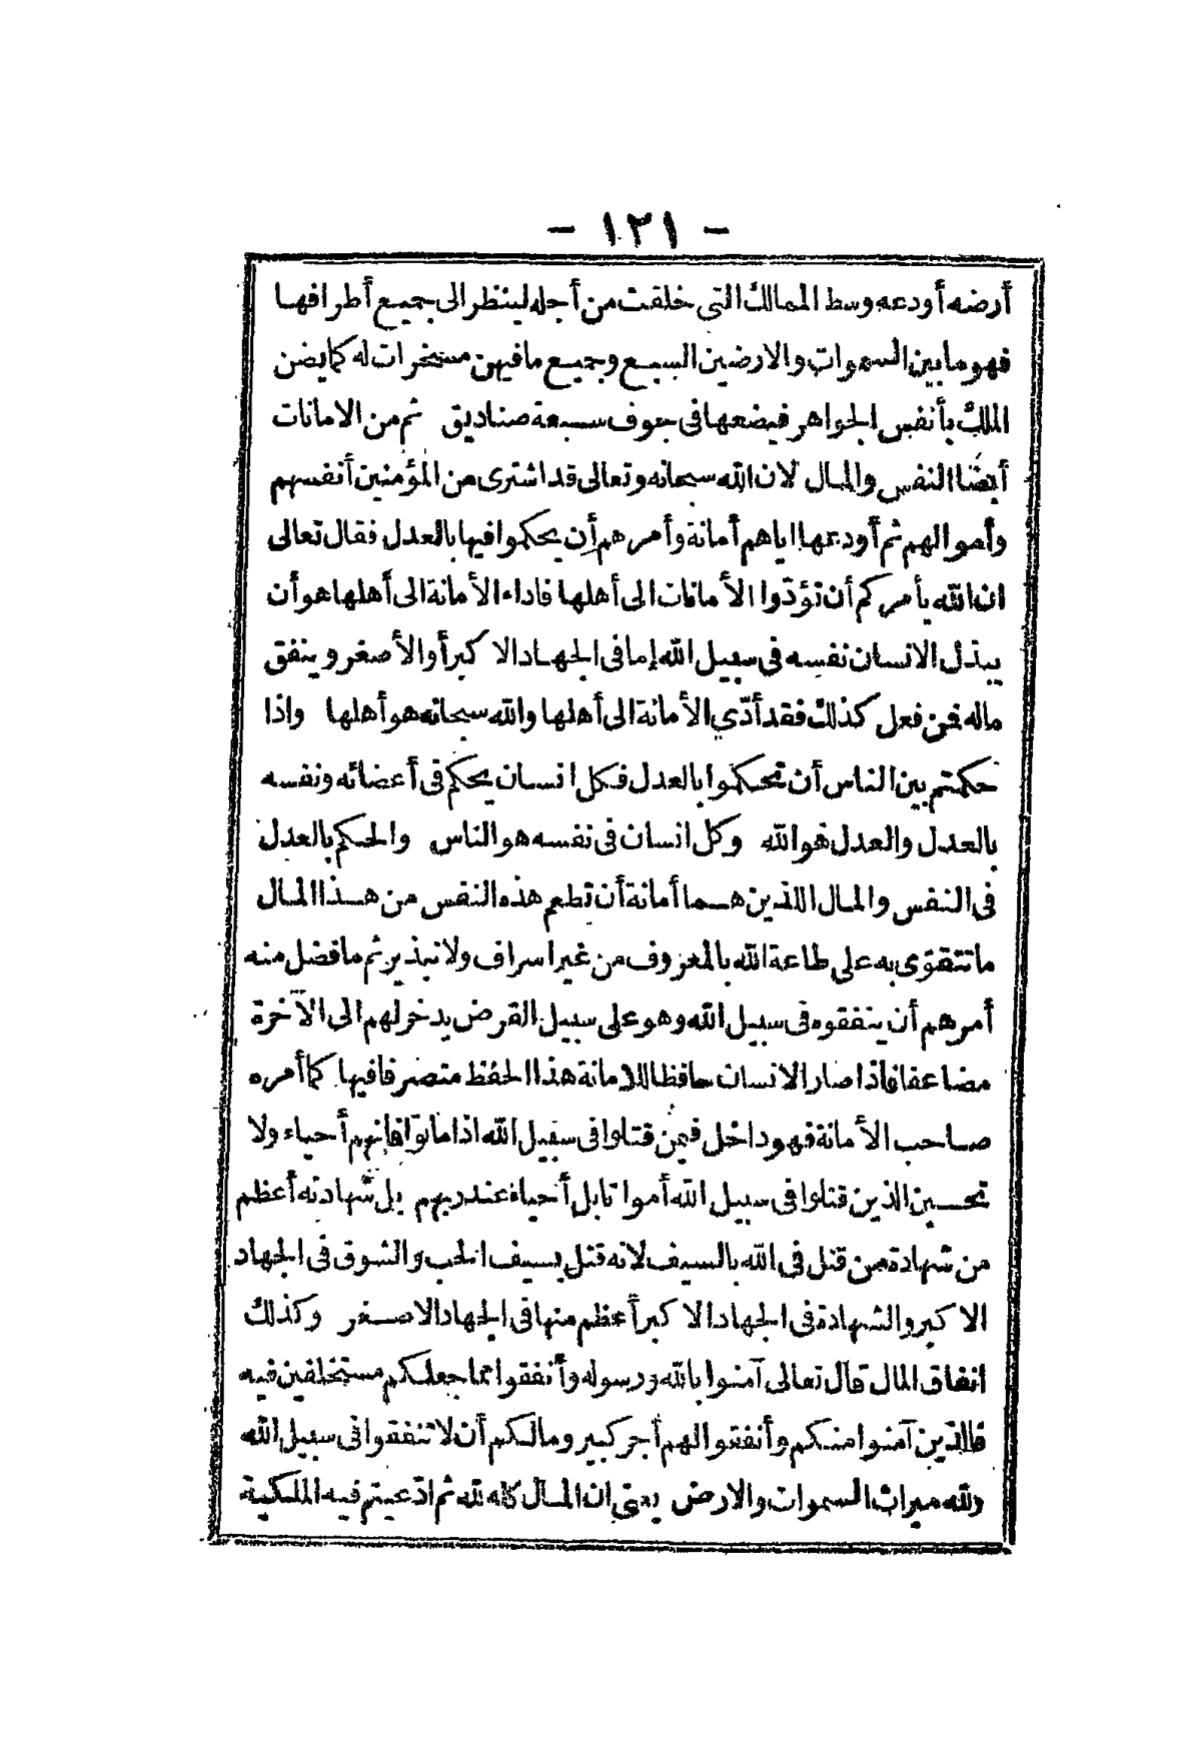 - ١٢١ -
أرضه أودعه وسط الممالك التي خلقت من أجله لينظر الى جميع أطرافها
فهو ما بين السموات والارضين السبع وجميع ما فيهن مسخرات له كما يضن
الملك بأنفس الجواهر فيضعها فى جوف سبعة صناديق ثم من الامانات
أيضا النفس والمال لان الله سبحانه وتعالى قد اشترى من المؤمنين أنفسهم
وأموالهم ثم أودعها اياهم أمانة وأمرهم أن يحكموا فيها بالعدل فقال تعالى
ان الله يأمركم أن تؤدّوا الأمانات الى أهلها فاداء الأمانة الى أهلها هو أن
يبذل الانسان نفسه فى سبيل الله إما فى الجهاد الاكبر أو الأصغر وينفق
ماله فمن فعل كذلك فقد أدّي الأمانة الى أهلها والله سبحانه هو أهلها واذا
حكمتم بين الناس أن تحكموا بالعدل فكل انسان يحكم فى أعضائه ونفسه
بالعدل والعدل هو الله وكل انسان فى نفسه هو الناس والحكم بالعدل
فى النفس والمال اللذين هما أمانة أن تطعم هذه النفس من هذا المال
ما تتقوّى به على طاعة الله بالمعروف من غير اسراف ولا تبذير ثم ما فضل منه
أمرهم أن ينفقوه فى سبيل الله وهو على سبيل القرض يدخر لهم الى الآخرة
مضاعفا فاذا صار الانسان حافظا للامانة هذا الحفظ متصرفا فيها كما أمره
صاحب الأمانة فهو داخل فيمن قتلوا فى سبيل الله اذا ماتوا فانهم أحياء ولا
تحسبن الذين قتلوا فى سبيل الله أمواتا بل أحياء عند ربهم بل شهادته أعظم
من شهادة من قتل فى الله بالسيف لانه قتل بسيف الحب والشوق فى الجهاد
الاكبر والشهادة فى الجهاد الاكبر أعظم منها فى الجهاد الاصغر وكذلك
انفاق المال قال تعالى آمنوا بالله ورسوله وأنفقوا مما جعلكم مستخلفين فيه
فالذين آمنوا منكم وأنفقوا لهم أجر كبير ومالكم أن لا تنفقوا فى سبيل الله
ولله ميراث السموات والارض يعنى ان المال كله لله ثم ادّعيتم فيه الملكية